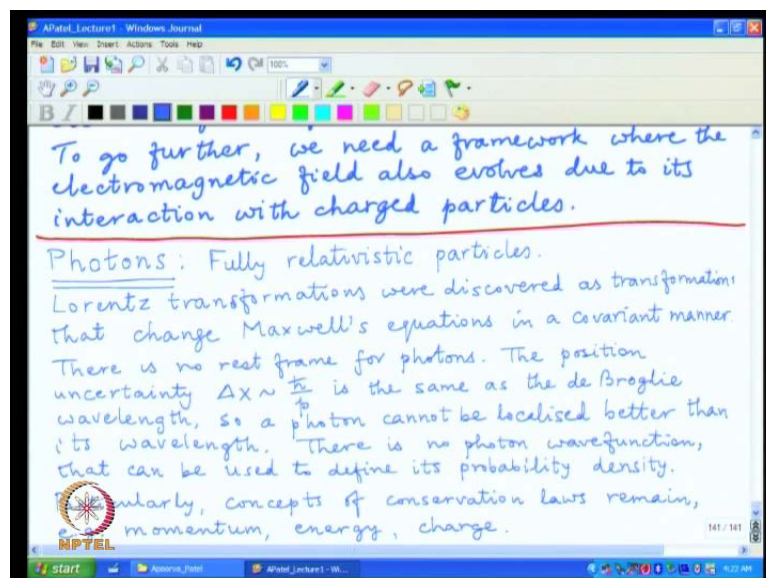 APatel_Lecture1 - Windows Journal
File Edit View Insert Actions Tools Help
100%
B I
To go further, we need a framework where the
electromagnetic field also evolves due to its
interaction with charged particles.
Photons: Fully relativistic particles.
Lorentz transformations were discovered as transformations
that change Maxwell's equations in a covariant manner.
There is no rest frame for photons. The position
uncertainty Δx ~ ħ/p is the same as the de Broglie
wavelength, so a photon cannot be localised better than
its wavelength. There is no photon wavefunction,
that can be used to define its probability density.
concepts of conservation laws remain,
e.g. momentum, energy, charge.
141 / 141
NPTEL
start Apoorva_Patel APatel_Lecture1 - Wi... 4:22 AM